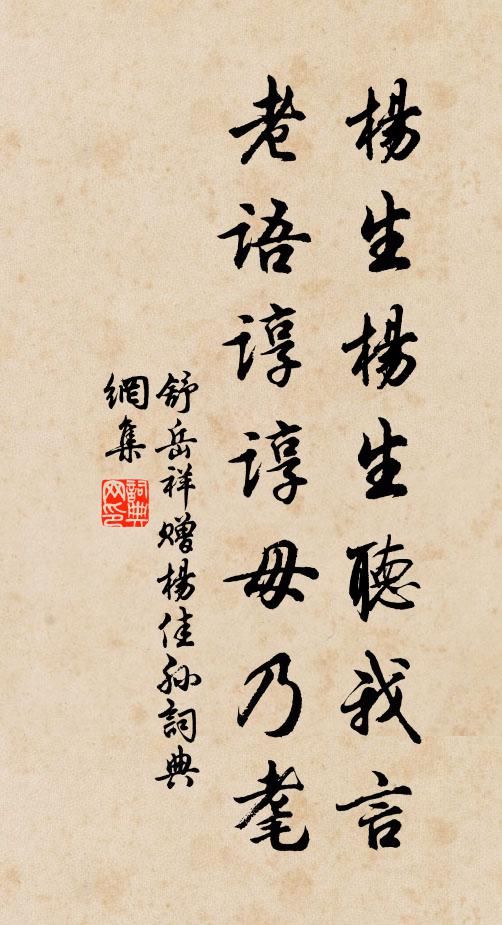 楊生楊生聽我言
老語諄諄毋乃耄
舒岳祥贈楊佳孫詞典
網集
詞典
网印